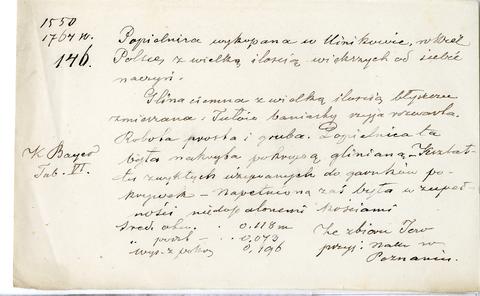 1550
1764 n.
146.
Popielnica wykopana w Ninikowie, w Król.
Polsce z wielką ilością większych od siebie
naczyń.
Glina ciemna z wielką ilością błyszczu
zmieszana: Tułów baniasty szyja rozwarta.
Robota prosta i gruba. Popielnica ta
była nakryta pokrywą glinianą
zwykłych używanych do garnków po-
krywek – napełnioną zaś była w zupeł-
ności niedopalonemi kościami
K. Bayer
Tab. VI.
Śred. otw. . . 0.118 m
" podst. . . 0,073
wys. z pokr. 0,196
Ze zbioru Tow
przyj. nauk w
Poznaniu.